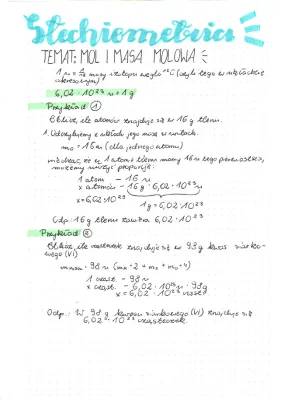 Stechiometria
TEMAT: MOL I MASA MOLOWA
1 u = 1/12 masy izotopu węgla ¹²C (czyli tego w układzie
okresowym)
6,02 · 10²³ u = 1 g
Przykład 1
Oblicz, ile atomów znajduje się w 16 g tlenu.
1. Odczytujemy z układu jego masę w unitach.
mo = 16 u (dla jednego atomu)
że 1 atom tlenu mamy 16 u
możemy ułożyć proporcję:
1 atom - 16 u
x atomów - 16 g · 6,02 · 10²³ u
x = 6,02 · 10²³
1g = 6,02 · 10²³
Odp.: 16 g tlenu zawiera 6,02 · 10²³
Przykład 2
Oblicz, ile cząsteczek znajduje się w 98 g kwasu siarko-
wego (VI)
= 98 u (mH · 2 + ms + mo · 4)
1 cząst. - 98 u
x cząst. - 6,02 · 10²³ u · 98 g
x = 6,02 · 10²³ cząst.
Odp.: W 98 g kwasu siarkowego (VI) znajduje się
6,02 · 10²³ cząsteczek.